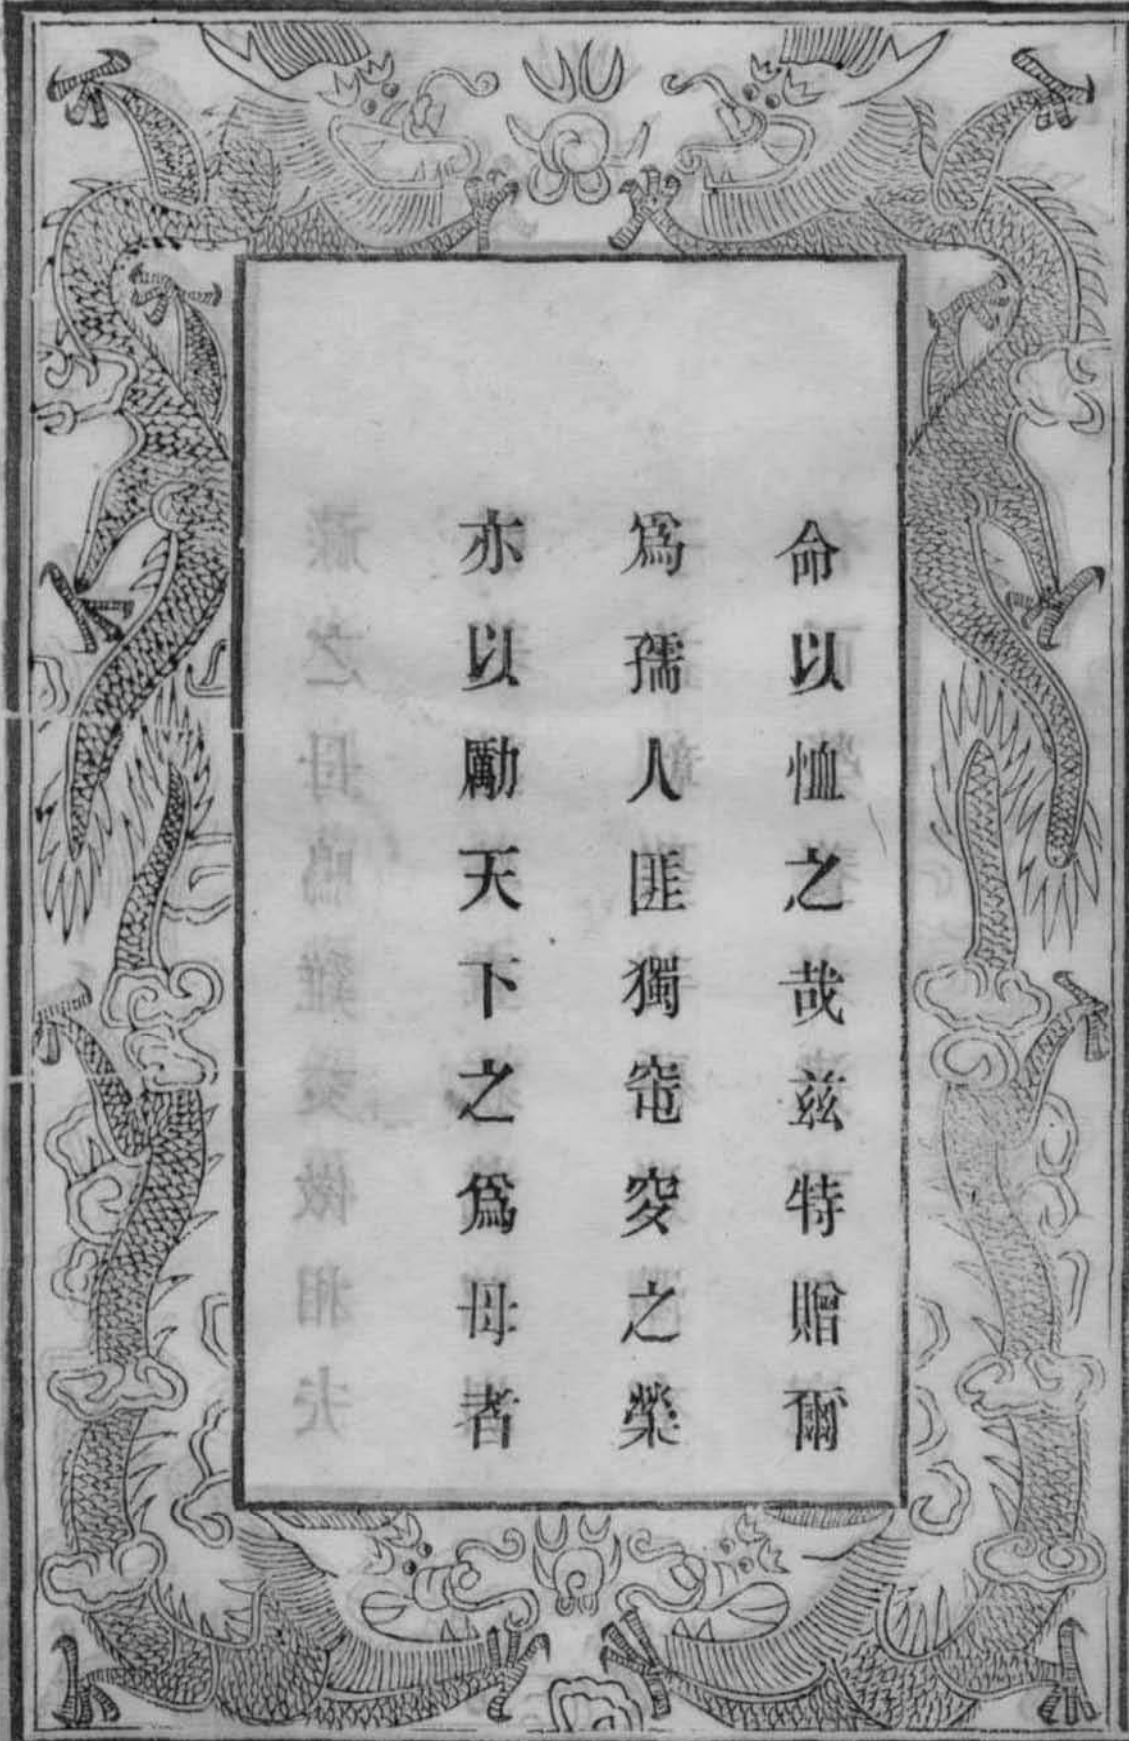 命以恤之哉兹特贈爾
爲孺人匪獨窀穸之榮
亦以勵天下之爲母者